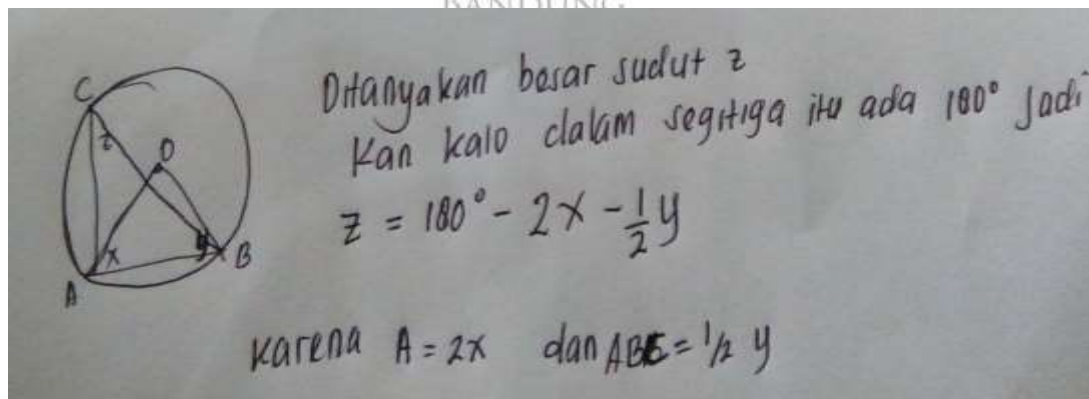 BANDUNG
C
O
z
x
y
B
A
Ditanyakan besar sudut z
Kan kalo dalam segitiga itu ada 180° Jadi
z = 180° - 2x - 1/2 y
Karena A = 2x dan ABC = 1/2 y